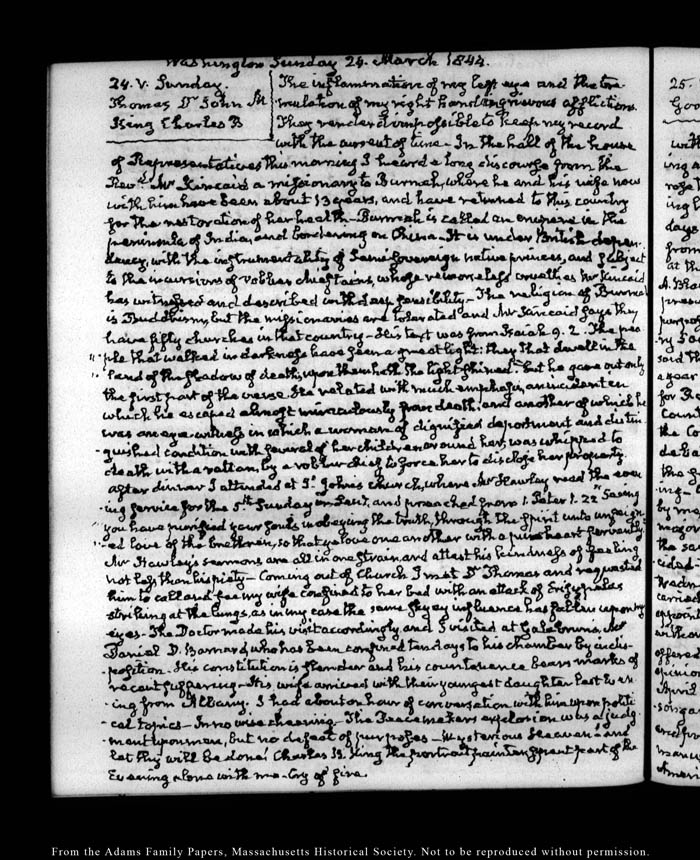 Washington Sunday 24. March 1844.
24. V. Sunday.
Thomas Dr John M
King Charles B
The inflammation of my left eye and the tre-
mulation of my right hand are grievous afflictions.
They render it impossible to keep my record
with the current of time. In the hall of the house
of Representatives this morning I heard a long discourse from the
Revd. Mr Kincaid a missionary to Burmah, where he and his wife now
with him have been about 13 years, and have returned to this country
for the restoration of her health - Burmah is called an empire in the
peninsula of India, and bordering on China - It is under British depen-
dency, with the instrumentality of Semi Sovereign native princes, and subject
to the incursions of robber chieftains, whose remorseless cruelties Mr Kincaid
has witnessed and described with deep sensibility - The religion of Burmah
is Buddhism, but the missionaries are tolerated and Mr Kincaid says they
have fifty churches in that country - His text was from Isaiah 9. 2. The peo-
ple that walked in darkness have seen a great light: they that dwell in the
land of the shadow of death, upon them hath the light shined. but he gave out only
the first part of the verse. He related with much emphasis, an incident in
which he escaped almost miraculously from death, and another of which he
was an eye-witness in which a woman of dignified deportment and distin-
guished condition with several of her children around her, was whipped to
death with a rattan, by a robber chief to force her to disclose her property.
After dinner I attended at St. John's church, where Mr Hawley read the even-
ing service for the 5th Sunday in Lent, and preached from 1. Peter 1. 22 "Seeing
you have purified your souls in obeying the truth, through the Spirit unto unfeign-
ed love of the brethren, so that ye love one another with a pure heart fervently.
Mr Hawley's sermons are all in one strain and attest his kindness of feeling
not less than his piety - Coming out of Church I met Dr Thomas and requested
him to call and see my wife confined to her bed with an attack of Erisypelas
striking at the lungs, as in my case the same influence has fallen upon my
eyes. The Doctor made his visit accordingly and I visited at Gale
Daniel D. Barnard, who has been confined ten days to his chamber by indis-
position. His constitution is slender and his countenance bears marks of
recent suffering - His wife arrived with their youngest daughter last Even-
ing from Albany. I had about an hour of conversation with him upon politi-
cal topics - In no wise cheering - The Peacemakers explosion was a judg-
ment upon men, but no defeat of purposes - Mysterious Heaven - and
let thy will be done! Charles B. King the portrait painter spent part of the
Evening alone with me - Cry of fire.
25.
From the Adams Family Papers, Massachusetts Historical Society. Not to be reproduced without permission.